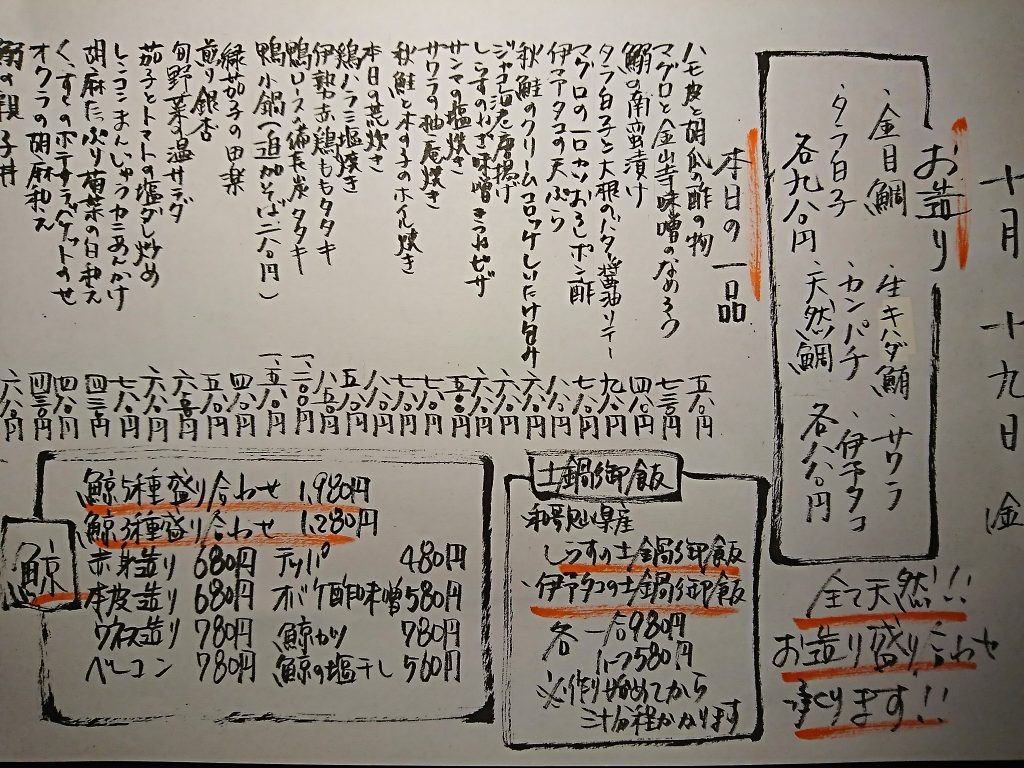 十月十九日 金
お造り
・金目鯛 ・生キハダ鮪 ・サワラ
・タラ白子 ・カンパチ ・伊予タコ
各九八〇円 天然鯛 各八八〇円
全て天然!!
お造り盛り合わせ
承ります!!
本日の一品
ハモ皮と胡瓜の酢の物 五八〇円
マグロと金山寺味噌のなめろう 七三〇円
鰯の南蛮漬け 四八〇円
タラ白子と大根のバター醤油ソテー 九八〇円
マグロの一口カツおろしポン酢 七八〇円
伊予タコの天ぷら 八八〇円
秋鮭のクリームコロッケしいたけ包み 六八〇円
ジャコ唐揚げ 六八〇円
しらすのねぎ味噌きつねピザ 六八〇円
サンマの塩焼き 五八〇円
サワラの柚庵焼き 七八〇円
秋鮭ときの子のホイル焼き 七八〇円
本日の荒炊き 八八〇円
鶏ハラミ塩焼き 五八〇円
伊勢赤鶏ももタタキ 八五〇円
鴨ロースの備長炭タタキ 一、一〇〇円
鴨小鍋(追加そば二八〇円) 一、五八〇円
緑茄子の田楽 四八〇円
煎り銀杏 五八〇円
旬野菜の温サラダ 六八〇円
茄子とトマトの塩だし炒め 六八〇円
れんこんまんじゅうカニあんかけ 七八〇円
胡麻たっぷり菊菜の白和え 四三〇円
くんすとのポテサラバゲットのせ 四八〇円
オクラの胡麻和え 四三〇円
親子丼 六八〇円
土鍋御飯
和歌山県産
しらすの土鍋御飯
・伊予タコの土鍋御飯
各 一合980円
ハーフ580円
※作り始めてから
三十分程かかります
鯨
鯨5種盛り合わせ 1,980円
鯨3種盛り合わせ 1,280円
赤身造り 680円 テッパ 480円
本皮造り 680円 オバケ酢味噌 580円
ウネス造り 780円 鯨カツ 780円
ベーコン 780円 鯨の塩干し 560円